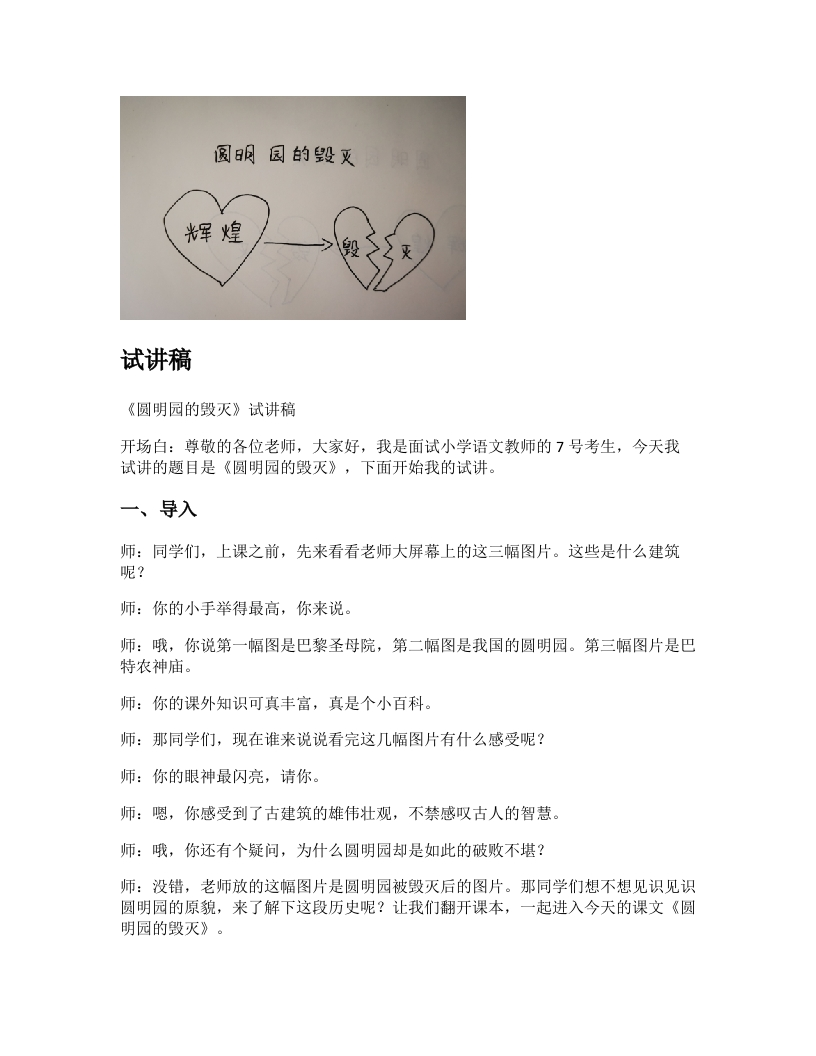 圆明园的毁灭
辉煌
毁 灭
试讲稿
《圆明园的毁灭》试讲稿
开场白：尊敬的各位老师，大家好，我是面试小学语文教师的 7 号考生，今天我
试讲的题目是《圆明园的毁灭》，下面开始我的试讲。
一、导入
师：同学们，上课之前，先来看看老师大屏幕上的这三幅图片。这些是什么建筑
呢？
师：你的小手举得最高，你来说。
师：哦，你说第一幅图是巴黎圣母院，第二幅图是我国的圆明园。第三幅图片是巴
特农神庙。
师：你的课外知识可真丰富，真是个小百科。
师：那同学们，现在谁来说说看完这几幅图片有什么感受呢？
师：你的眼神最闪亮，请你。
师：嗯，你感受到了古建筑的雄伟壮观，不禁感叹古人的智慧。
师：哦，你还有个疑问，为什么圆明园却是如此的破败不堪？
师：没错，老师放的这幅图片是圆明园被毁灭后的图片。那同学们想不想见识见识
圆明园的原貌，来了解下这段历史呢？让我们翻开课本，一起进入今天的课文《圆
明园的毁灭》。